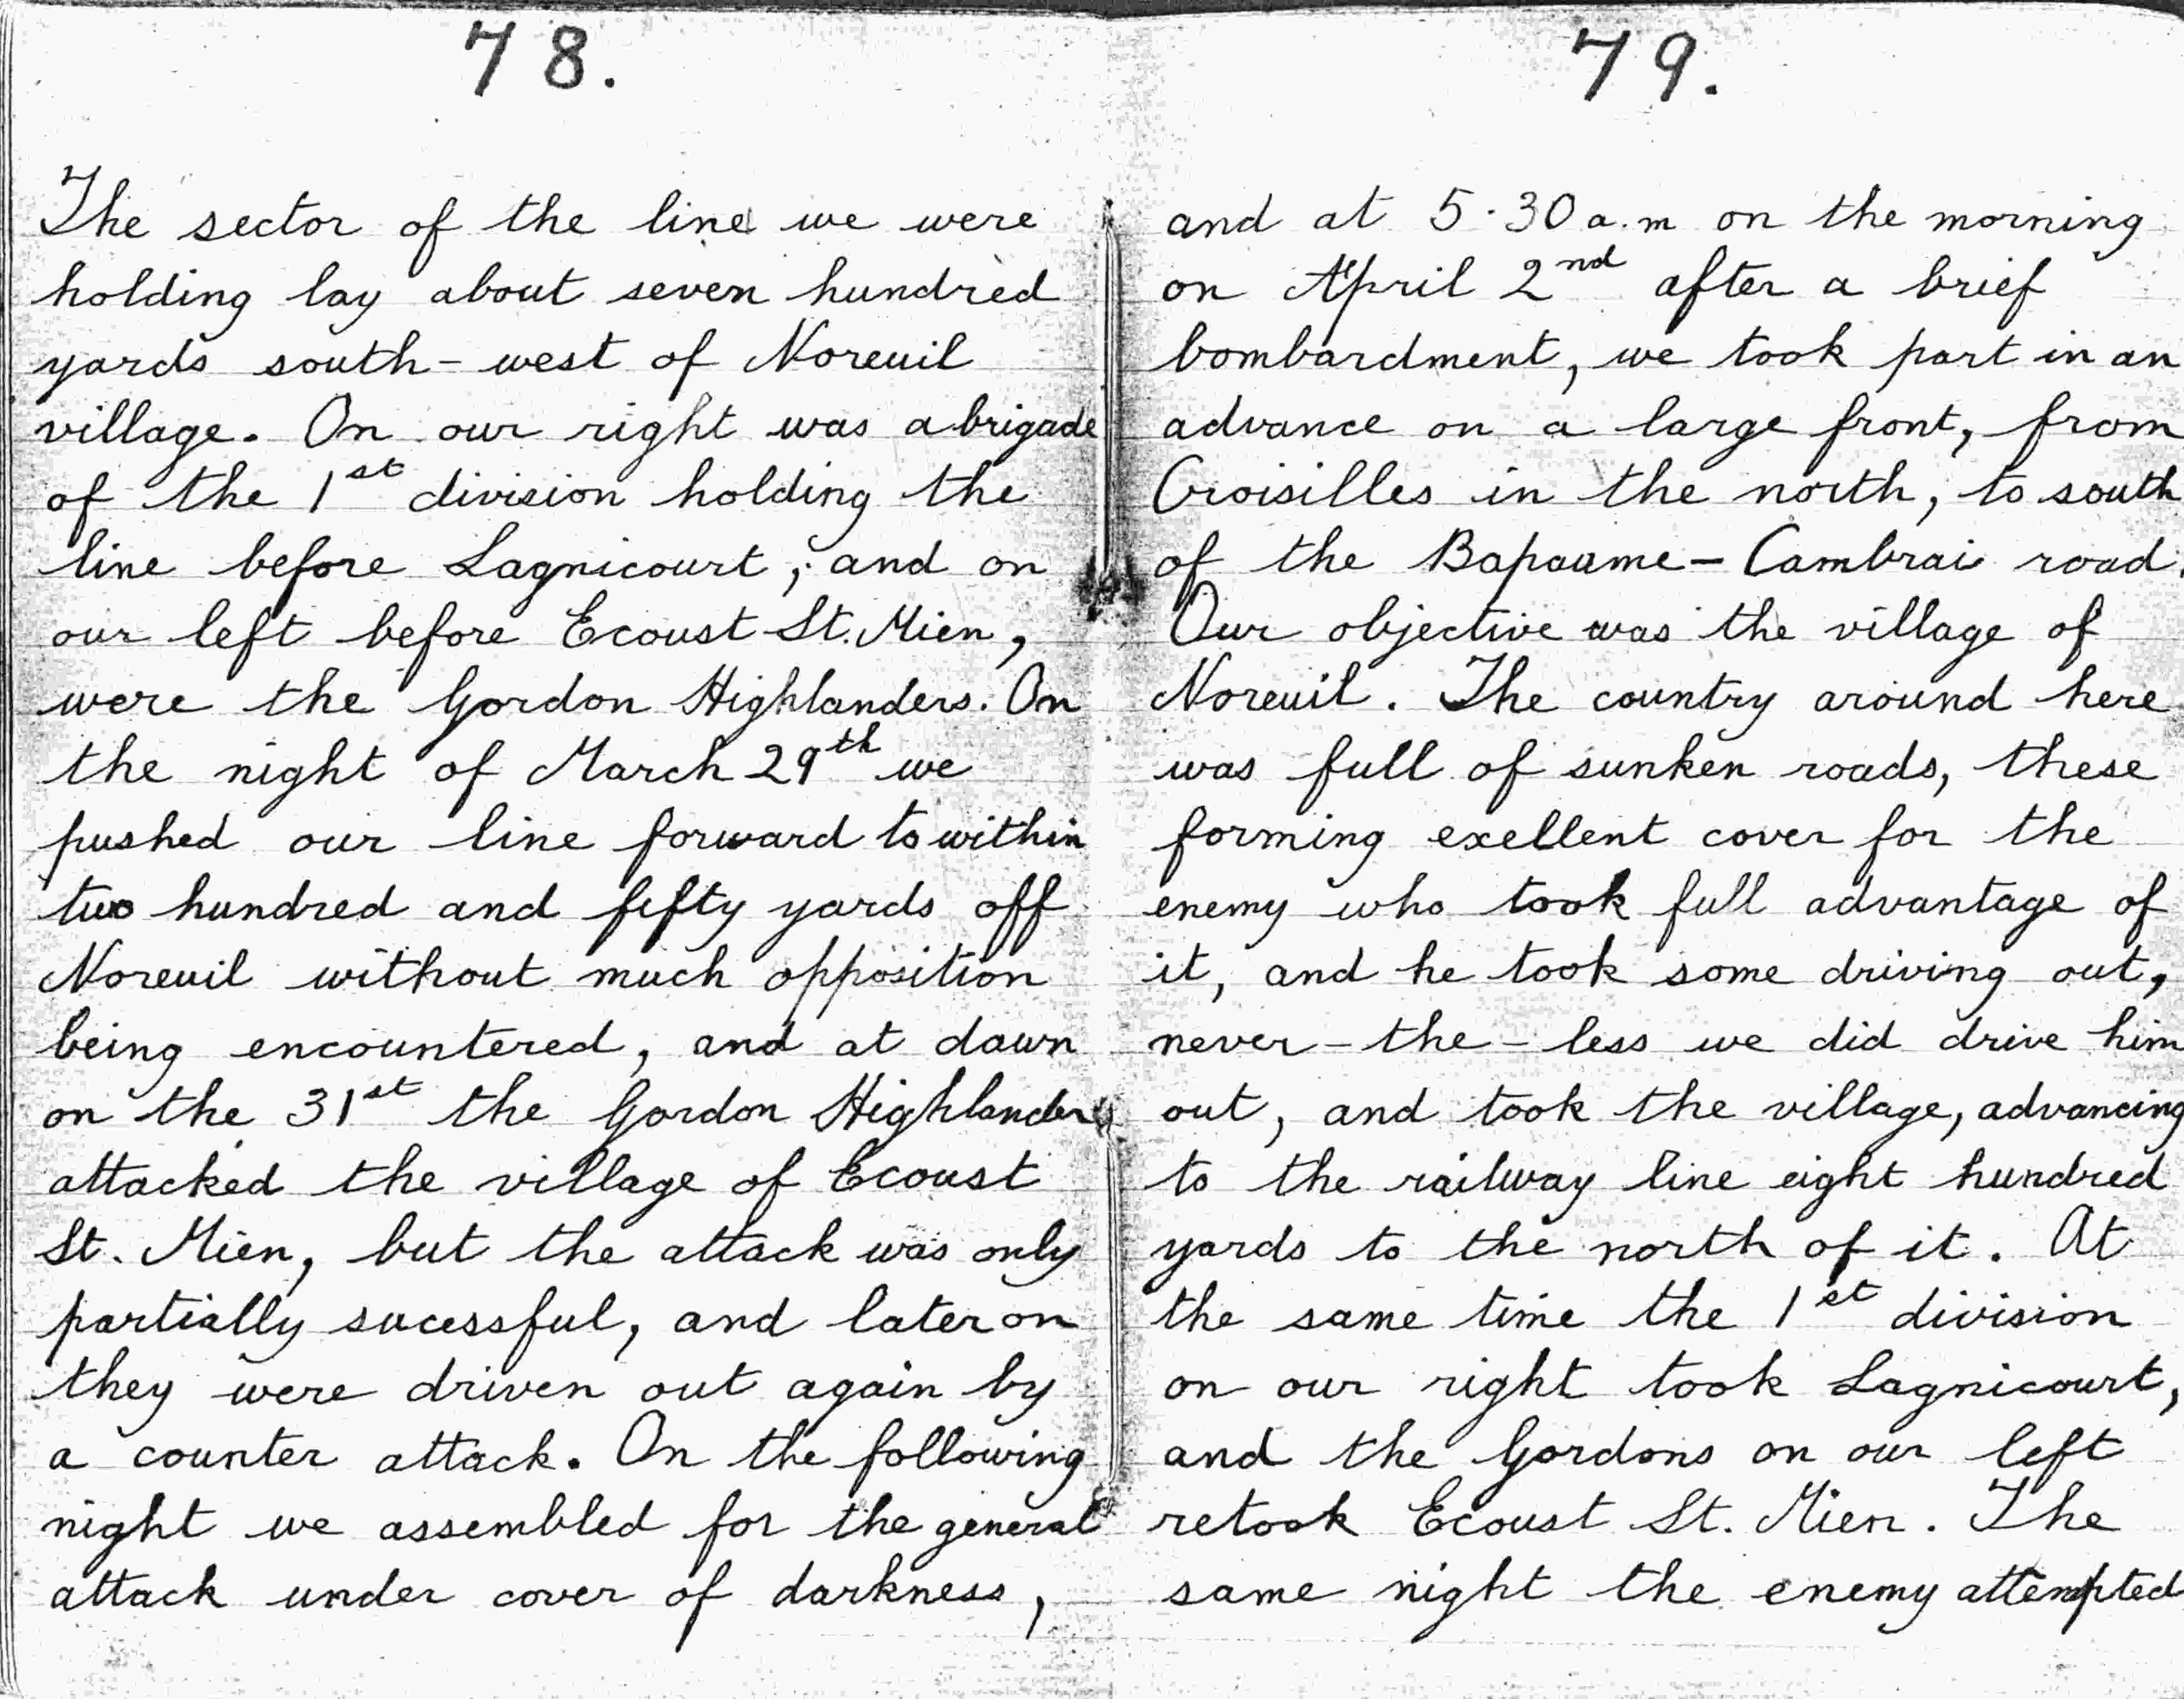 78.
The sector of the line we were
holding lay about seven hundred
yards south-west of Noreuil
village. On our right was a brigade
of the 1st division holding the
line before Lagnicourt, and on
our left before Ecoust St. Mien,
were the Gordon Highlanders. On
the night of March 29th we
pushed our line forward to within
two hundred and fifty yards off
Noreuil without much opposition
being encountered, and at dawn
on the 31st the Gordon Highlanders
attacked the village of Ecoust
St. Mien, but the attack was only
partially sucessful, and later on
they were driven out again by
a counter attack. On the following
night we assembled for the general
attack under cover of darkness,
79.
and at 5.30 a.m on the morning
on April 2nd after a brief
bombardment, we took part in an
advance on a large front, from
Croisilles in the north, to south
of the Bapaume-Cambrai road.
Our objective was the village of
Noreuil. The country around here
was full of sunken roads, these
forming exellent cover for the
enemy who took full advantage of
it, and he took some driving out,
never-the-less we did drive him
out, and took the village, advancing
to the railway line eight hundred
yards to the north of it. At
the same time the 1st division
on our right took Lagnicourt,
and the Gordons on our left
retook Ecoust St. Mien. The
same night the enemy attempted